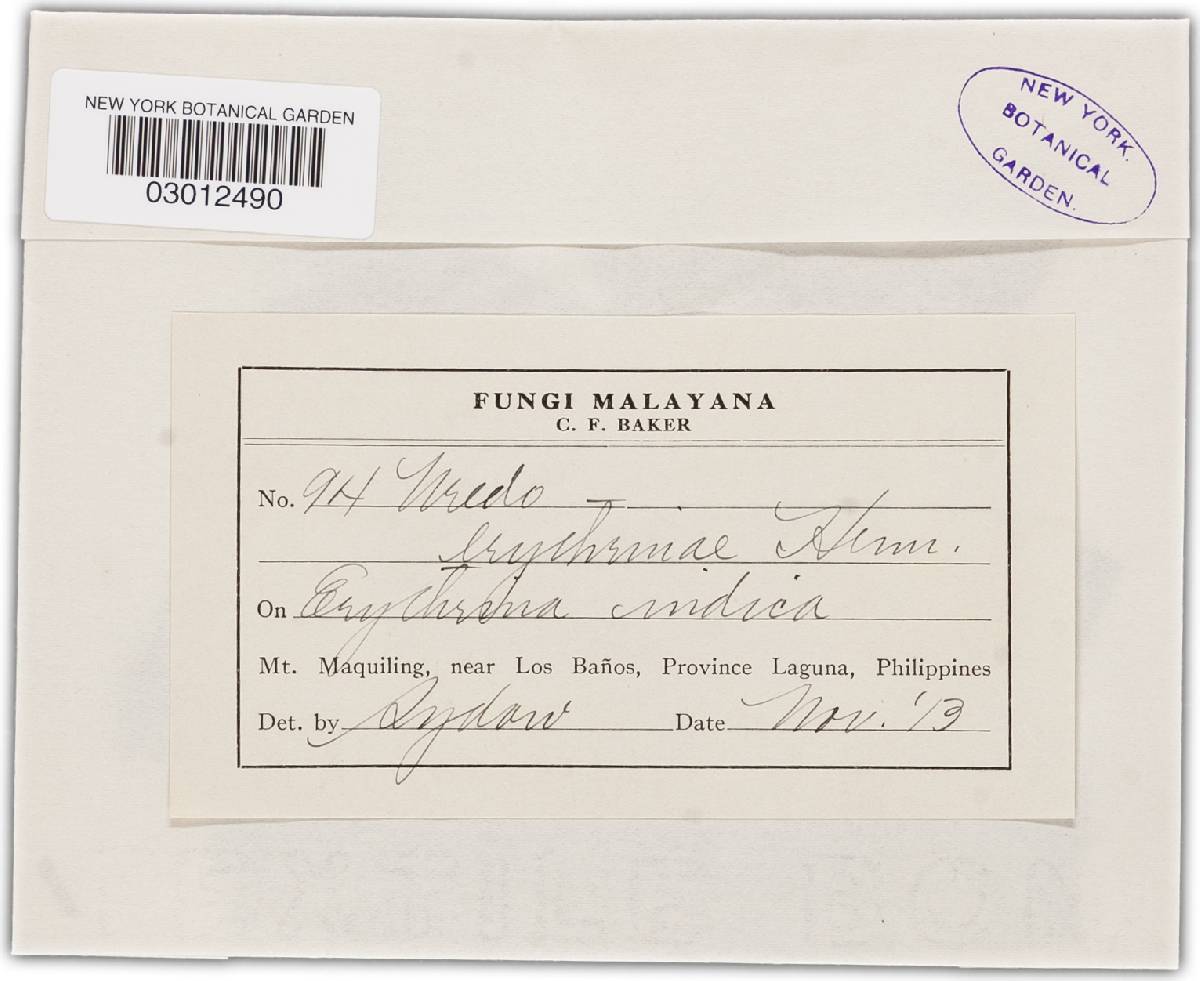 NEW YORK BOTANICAL GARDEN
03012490
NEW YORK.
BOTANICAL
GARDEN.
FUNGI MALAYANA
C. F. BAKER
No. 94 Uredo
erythrinae Henn.
On Erythrina indica
Mt. Maquiling, near Los Baños, Province Laguna, Philippines
Det. by Sydow Date Nov. '13